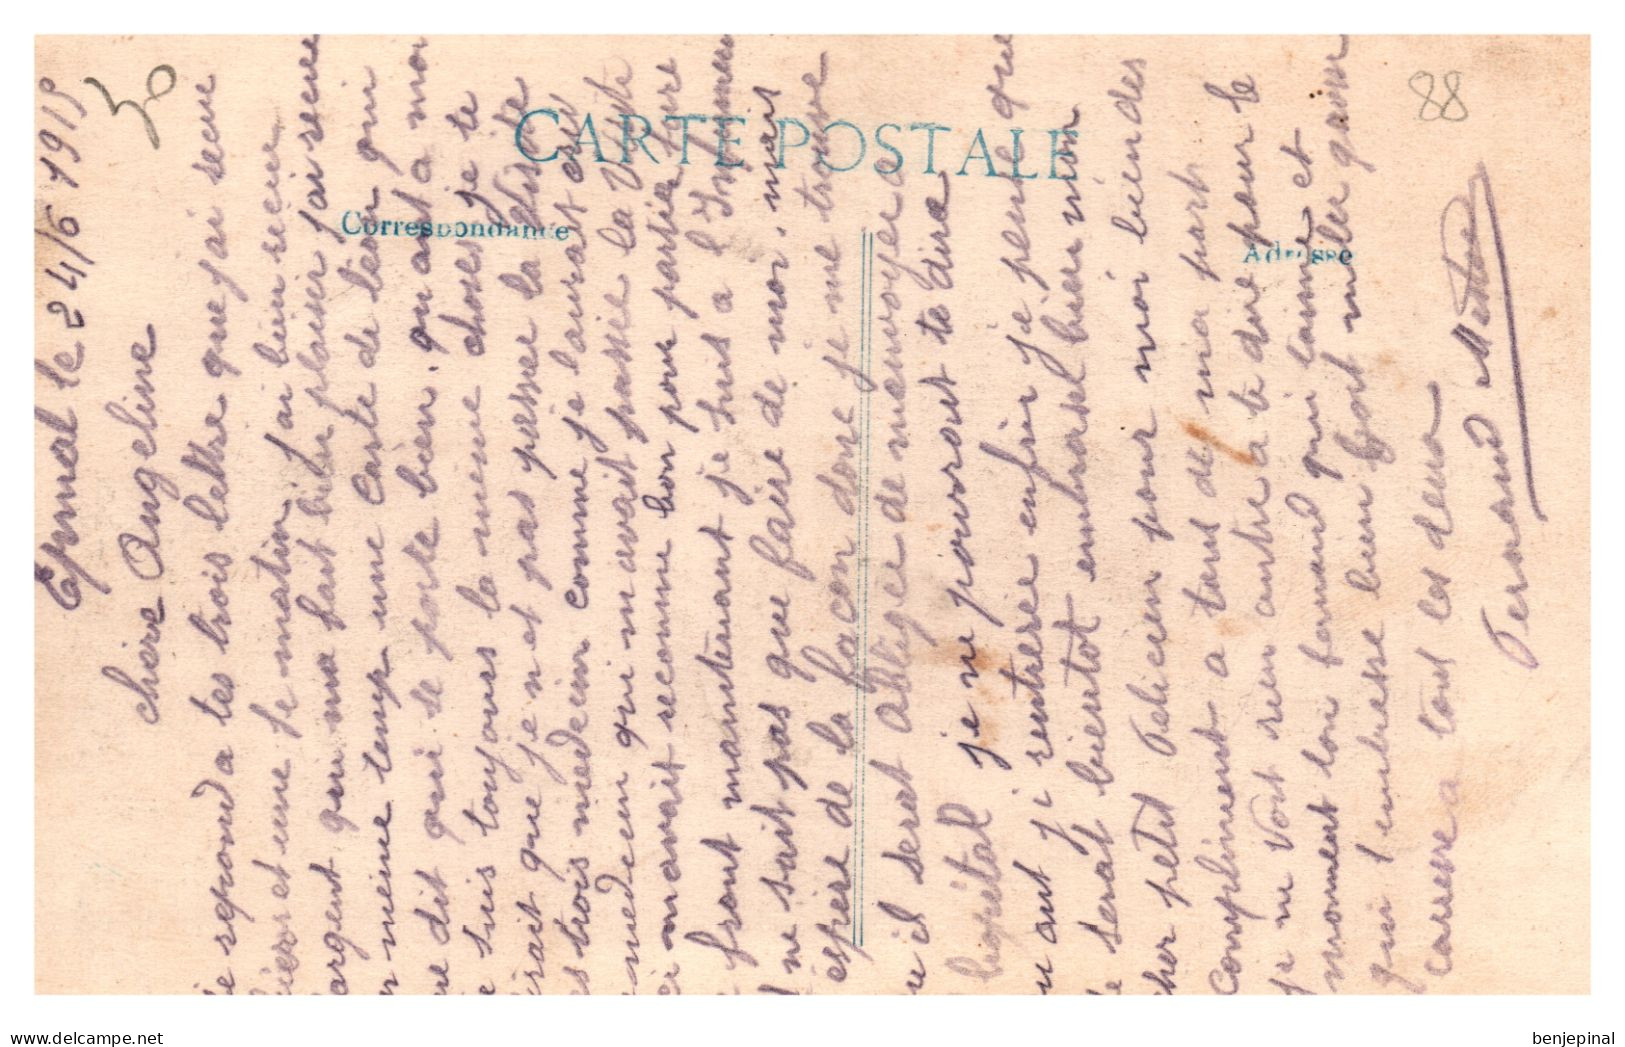 CARTE POSTALE
Correspondance
Adresse
88
50
Epinal le 24/6 1915
chère Angeline
je repond a tes trois lettre que jai recue
hier et une se matin jai bien recue
largent qui ma fait bien plaisir jai recue
en meine temp une carte de léon qui
me dit qui se porte bien. quant a moi
je suis toujours la meme choses je te
dirait que je net pas passer la visite
des trois medecin comme je laurait crue
medecin qui mavait passée la visite
ci mavait reconnue bon pour partir sure
le front maintenant je suis a l'Infirmerie
ne sait pas que faire de moi. mais
espere de la facon dore je me trouve
qu il seret obligée de menvoyer a
hopital je ne pourrait te dire
quant ji rentrere enfin je pense que
je serat bientot embrasse bien mon
cher petit Felicien pour moi bien des
Compliment a tous de ma part
je ne voit rien autre a te dire pour le
moment ton fernand qui taime et
qui t'embrasse bien fort miler gros
caresse a tous les deux
Fernand
benjepinal